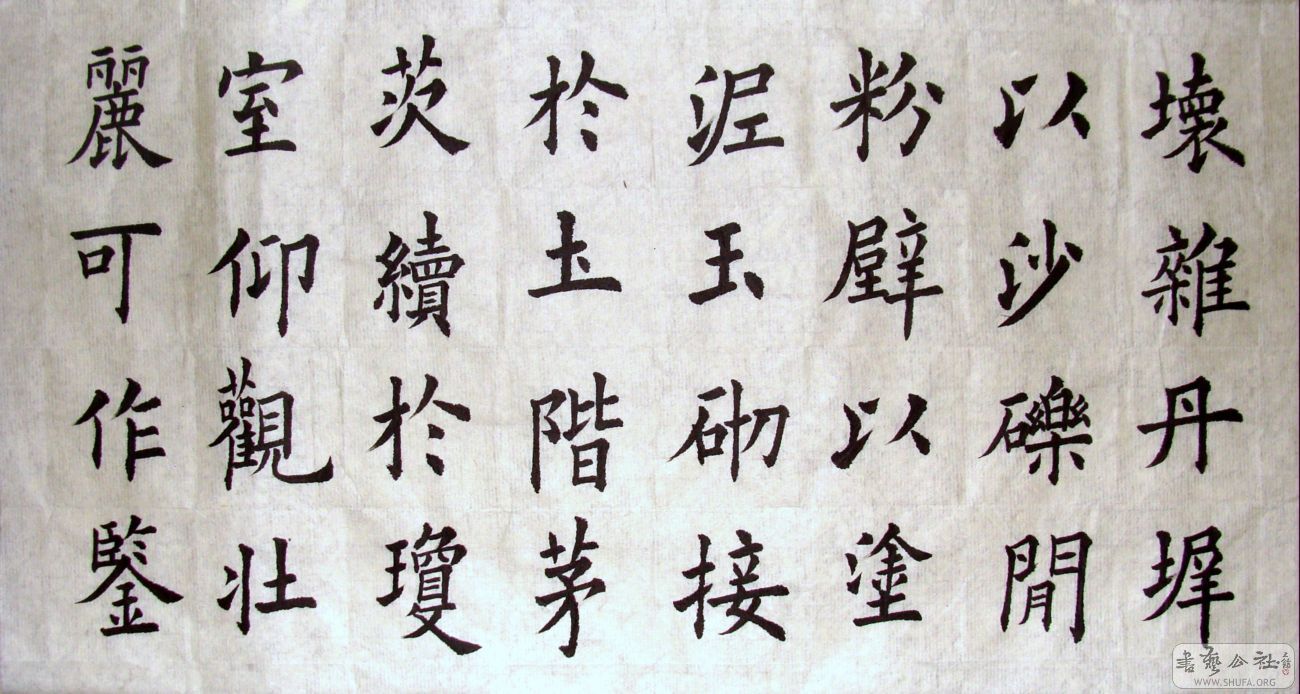 壞雜丹墀
以沙礫閒
粉壁以塗
泥玉砌接
於土階茅
茨續於瓊
室仰觀壯
麗可作鑒
書藝公社
WWW.SHUFA.ORG